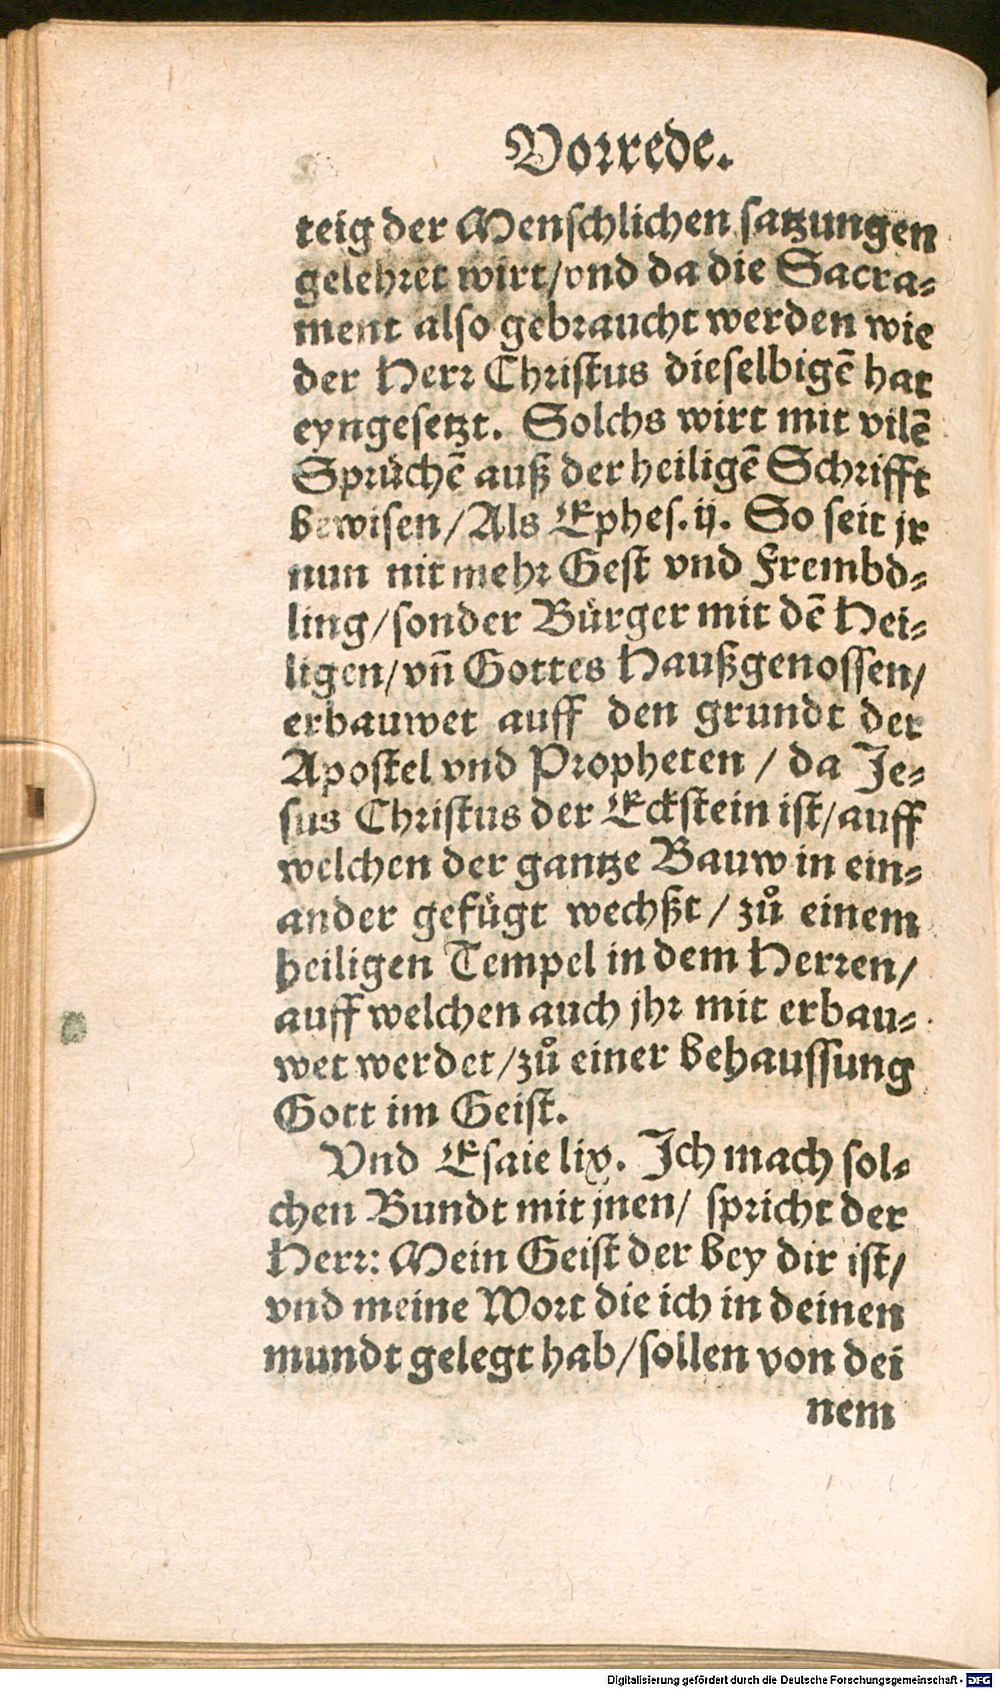 Vorrede.
teig der Menschlichen satzungen
gelehret wirt/vnd da die Sacra-
ment also gebraucht werden wie
der Herr Christus dieselbigē hat
eyngesetzt. Solchs wirt mit vilē
Sprüchē auß der heiligē Schrifft
bewisen/Als Ephes. ij. So seit jr
nun nit mehr Gest vnd Frembd-
ling/sonder Bürger mit dē Hei-
ligen/vñ Gottes Haußgenossen/
erbauwet auff den grundt der
Apostel vnd Propheten / da Je-
sus Christus der Eckstein ist/auff
welchen der gantze Bauw in ein-
ander gefügt wechßt / zů einem
heiligen Tempel in dem Herren/
auff welchen auch jhr mit erbau-
wet werdet/zů einer behaussung
Gott im Geist.
Vnd Esaie lix. Ich mach sol-
chen Bundt mit jnen/ spricht der
Herr: Mein Geist der bey dir ist/
vnd meine Wort die ich in deinen
mundt gelegt hab/sollen von dei
nem
Digitalisierung gefördert durch die Deutsche Forschungsgemeinschaft - DFG